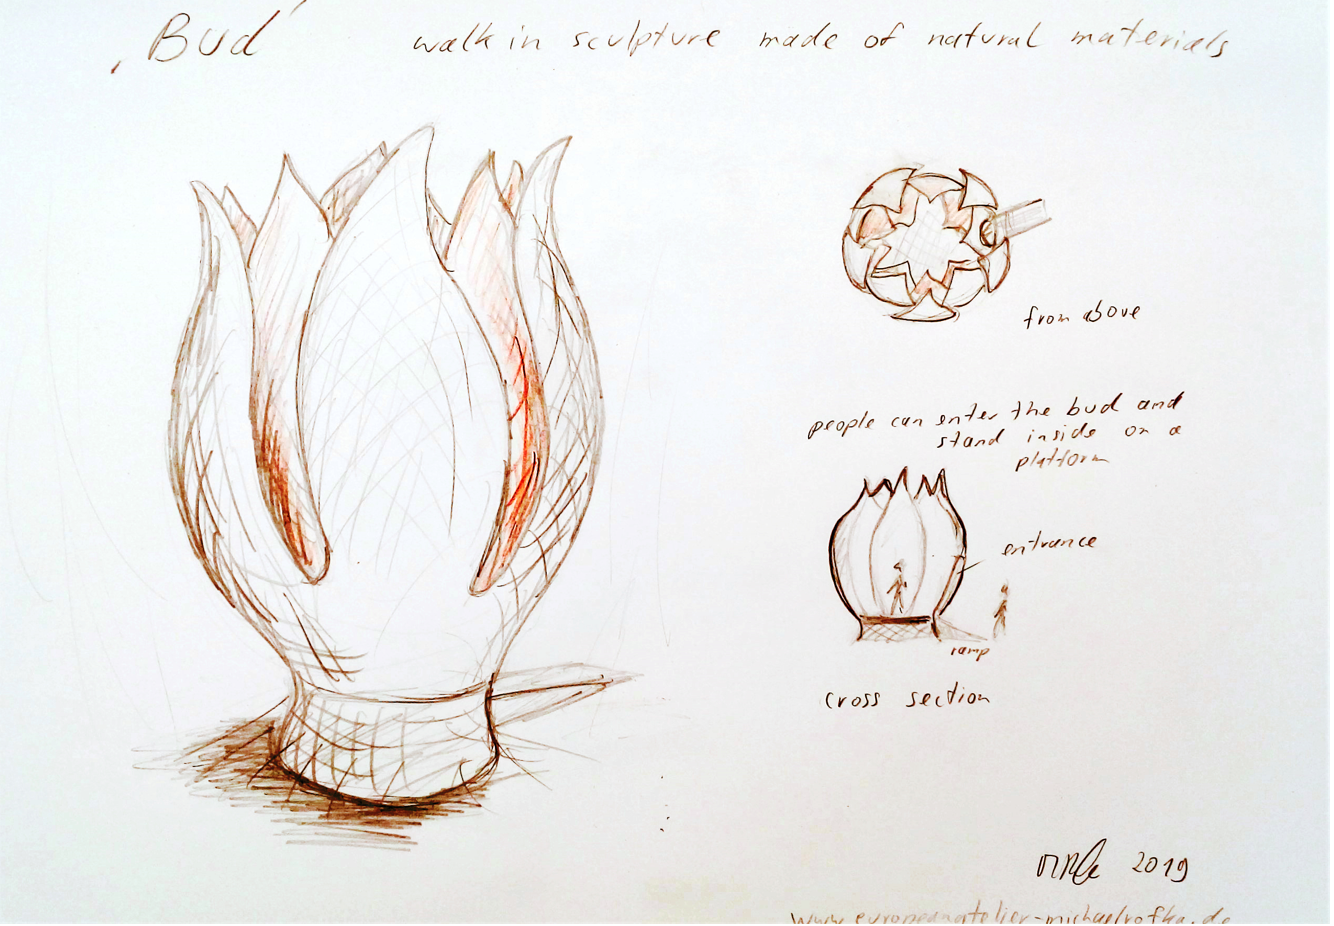 ‚Bud'
walk in sculpture made of natural materials
from above
people can enter the bud and
stand inside on a
platform
entrance
ramp
cross section
2019
www.europeanatelier-michaelrofka.de